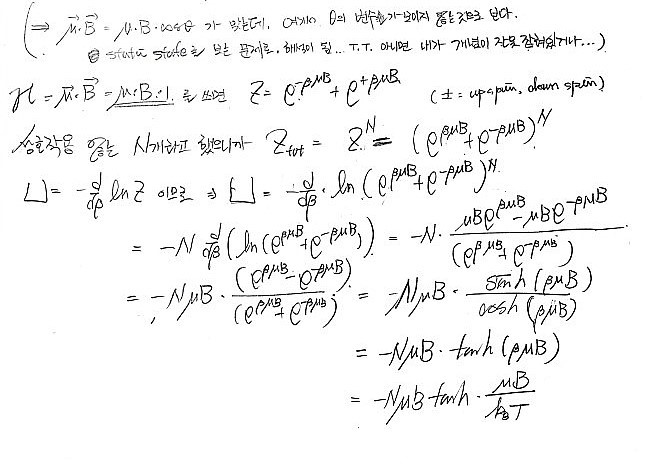 (⇒ μ⃗·B⃗ = μ·B·cosθ 가 맞는데, 여기서 θ의 변수가 보이지 않는 것으로 본다.
static state를 보는 문제로, 해석이 됨... T.T. 아니면 내가 개념이 잘못 잡혀있거나...)
H = μ⃗·B⃗ = μ·B·1 을 쓰면 Z = e^{-βμB} + e^{+βμB} (± = up spin, down spin)
상호작용 않는 N개라고 했으니까 Z_{tot} = Z^N = (e^{βμB} + e^{-βμB})^N
U = -d/dβ ln Z 이므로 ⇒ U = -d/dβ · ln (e^{βμB} + e^{-βμB})^N
= -N d/dβ (ln(e^{βμB} + e^{-βμB})) = -N · (μBe^{βμB} - μBe^{-βμB})/(e^{βμB} + e^{-βμB})
= -NμB · (e^{βμB} - e^{-βμB})/(e^{βμB} + e^{-βμB}) = -NμB · sinh(βμB)/cosh(βμB)
= -NμB · tanh(βμB)
= -NμB tanh · μB/k_BT